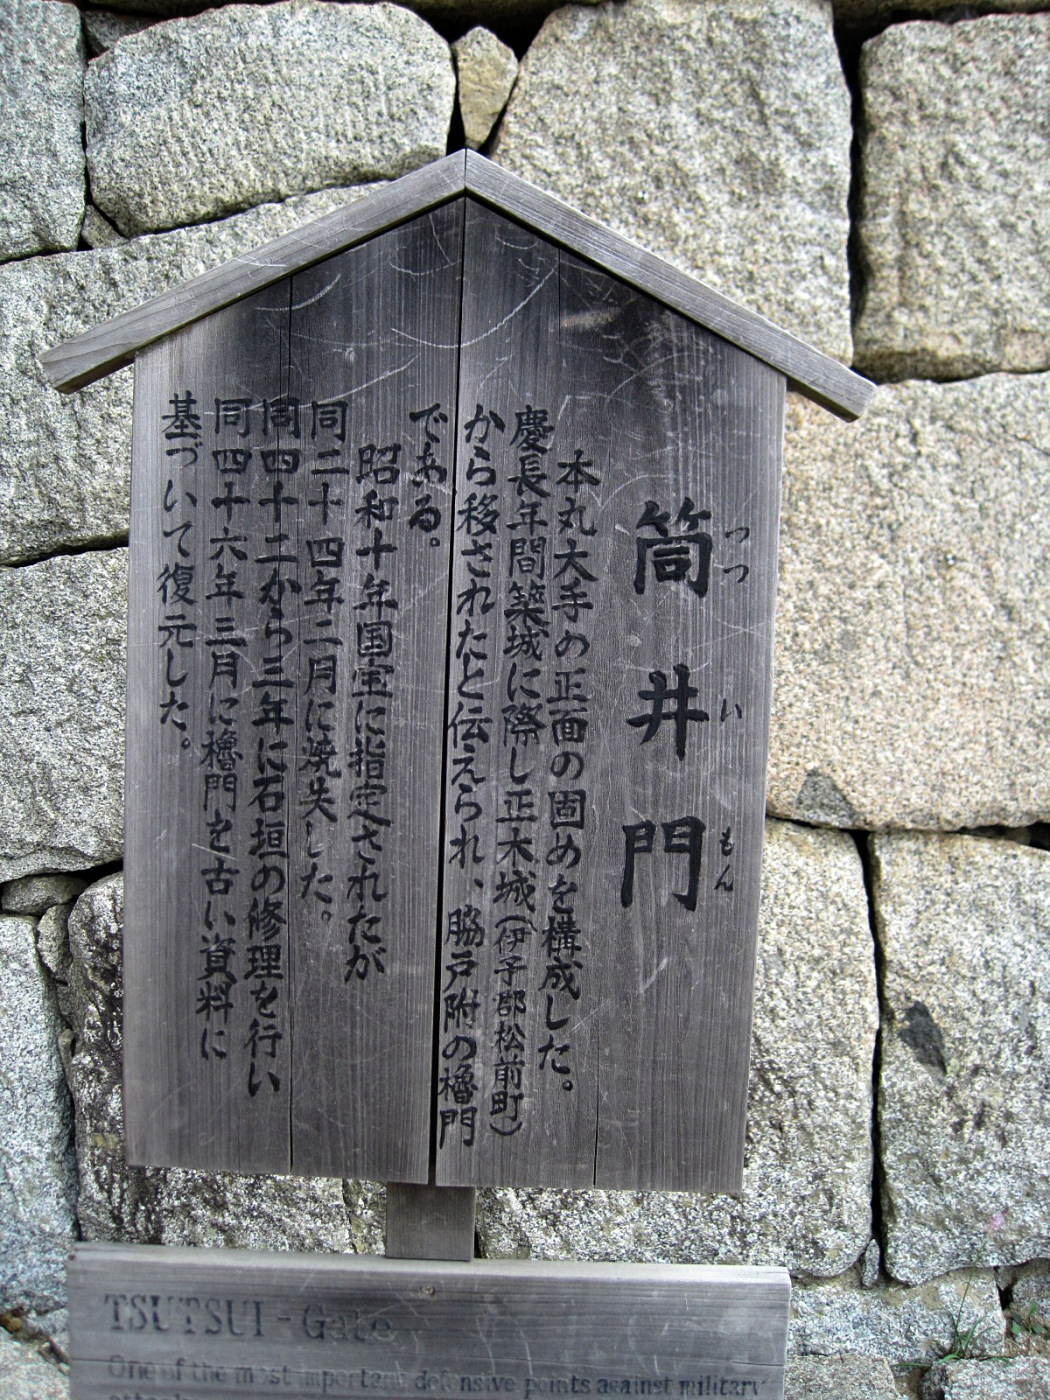 筒井門
つつ い もん
本丸大手の正面の固めを構成した。
慶長年間築城に際し正木城(伊予郡松前町)
から移されたと伝えられ、脇戸附の櫓門
である。
昭和十年国宝に指定されたが
同二十四年二月に焼失した。
同四十二から三年に石垣の修理を行い
同四十六年三月に櫓門を古い資料に
基づいて復元した。
TSUTSUI-Gate
One of the most important defensive points against military